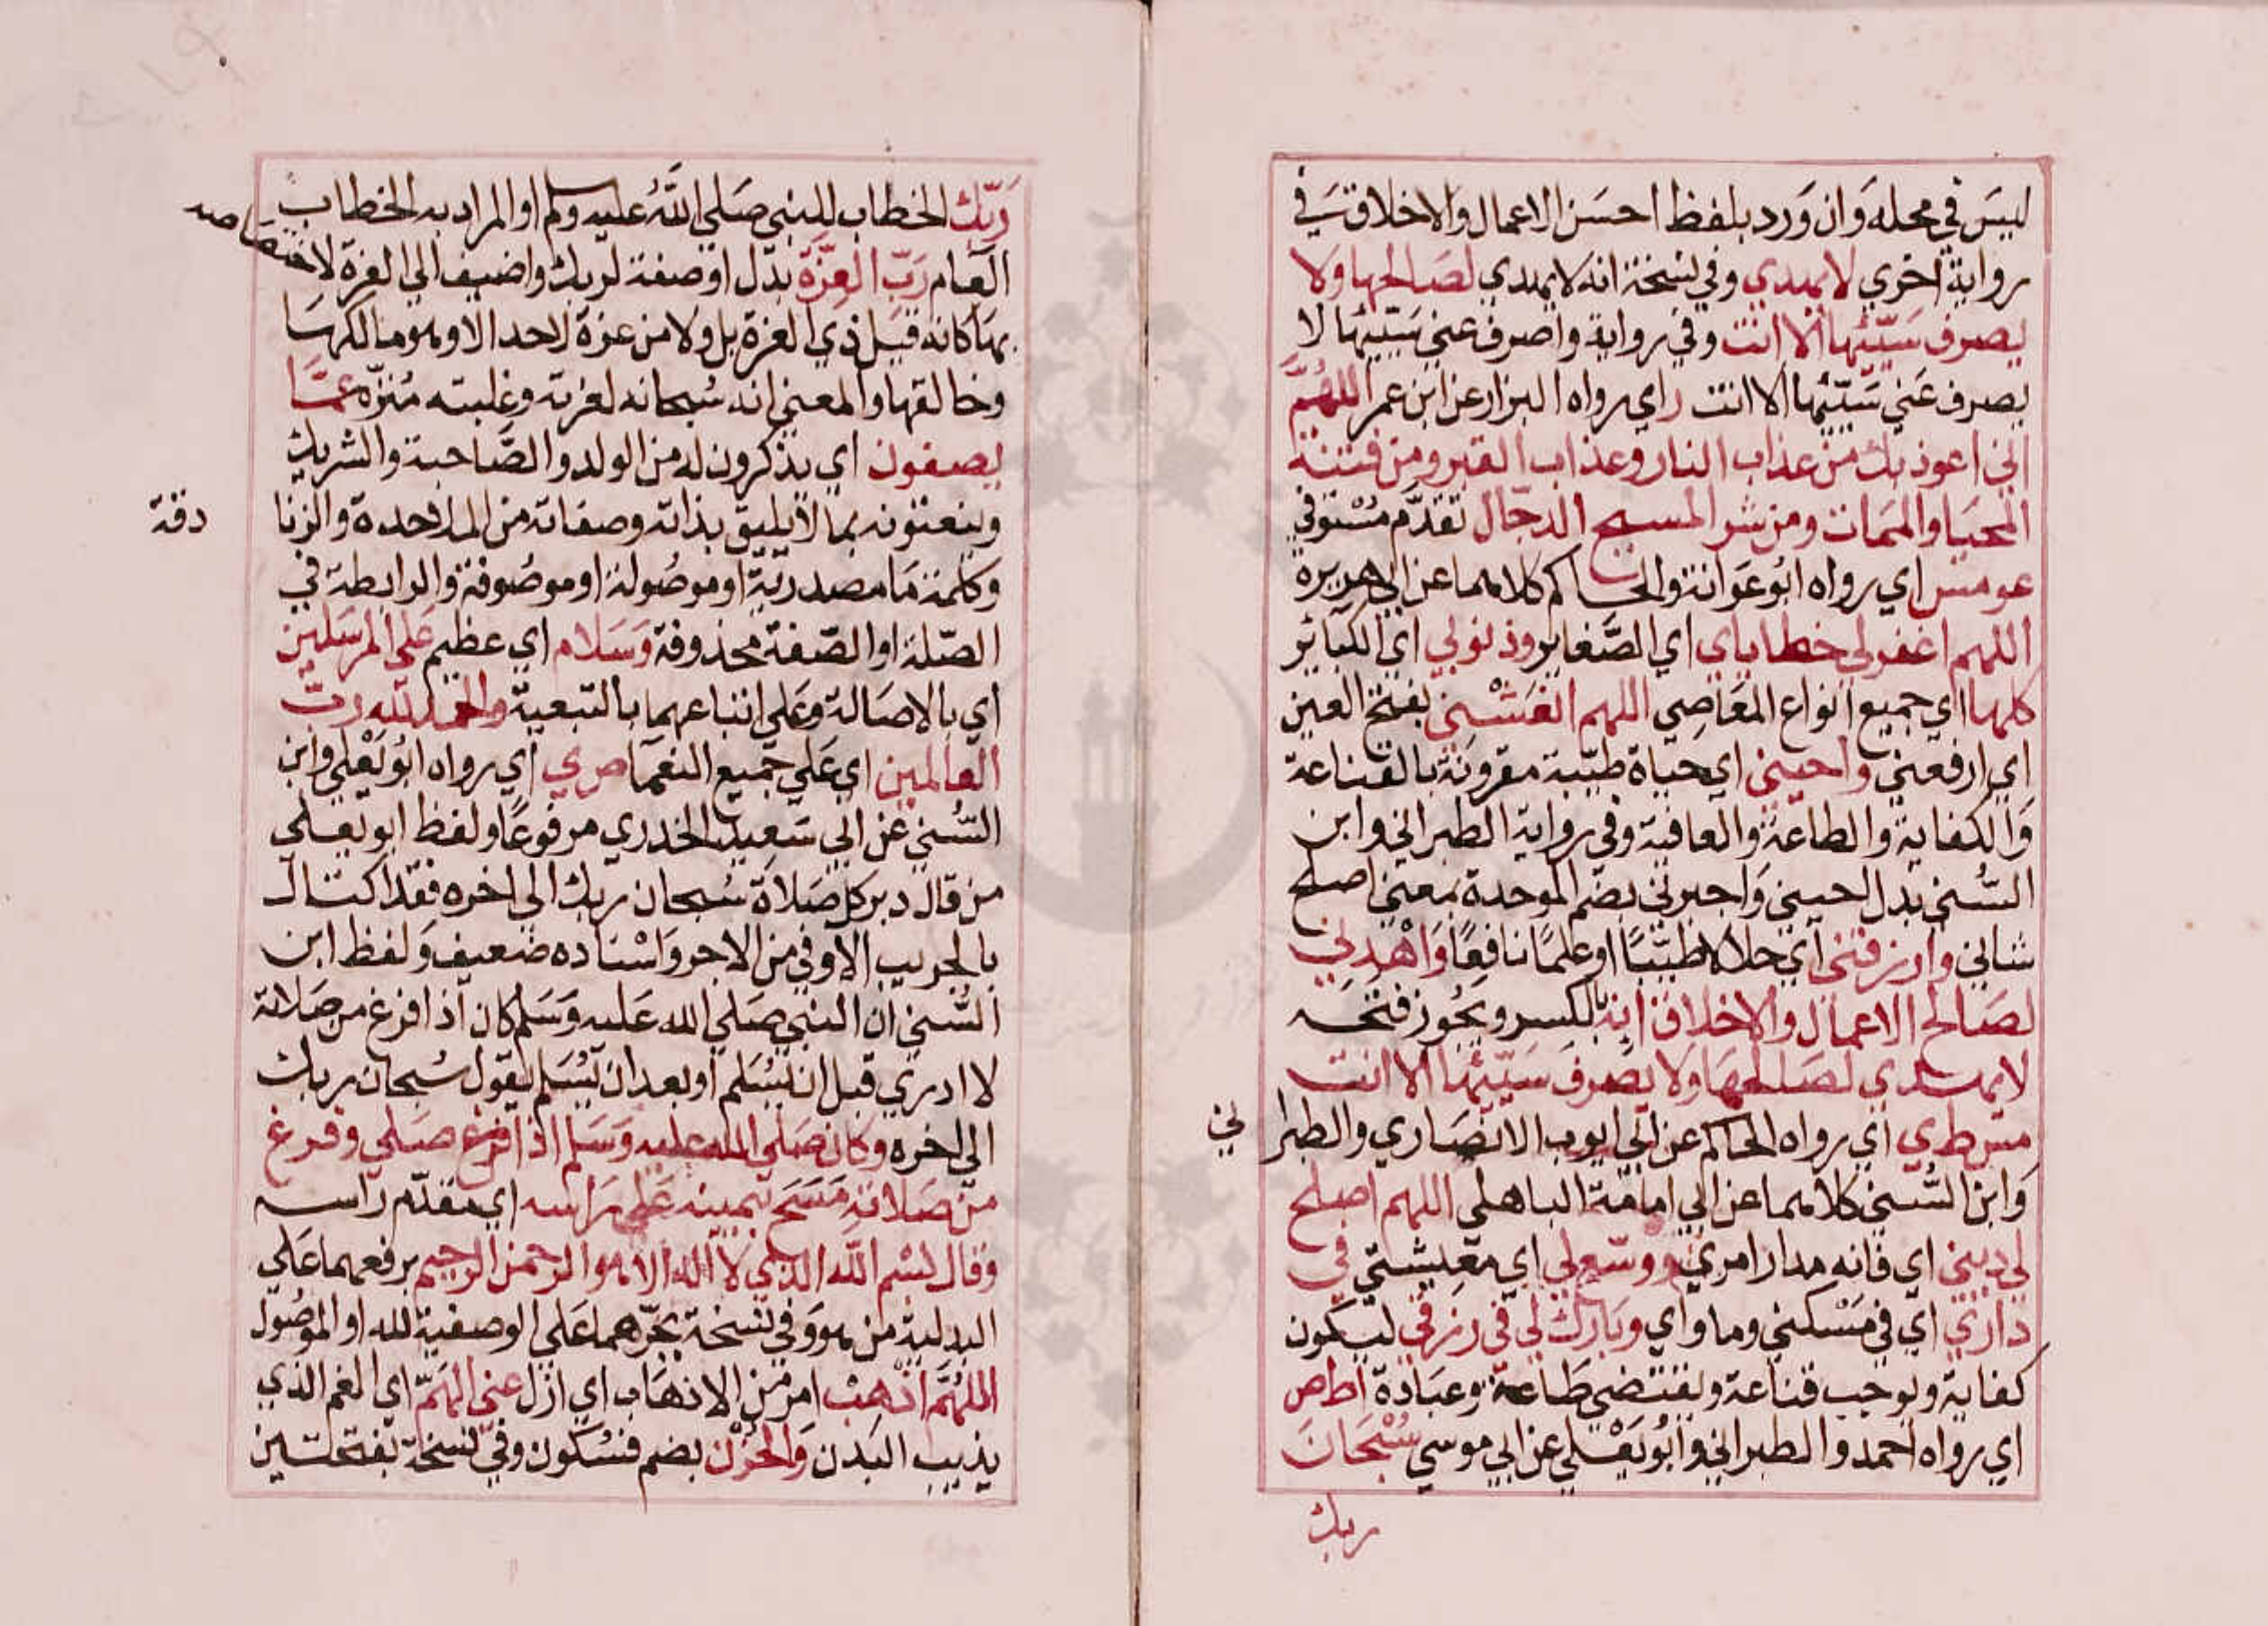 ليس في محله وان ورد بلفظ احسن الاعمال والاخلاق في
رواية اخري لا يهدي وفي نسخة انه لا يهدي لصالحها ولا
يصرف سيّئها الا انت وفي رواية واصرف عني سيّئها لا
يصرف عني سيّئها الا انت ر اي رواه البزار عن ابن عمر اللهُمَّ
اني اعوذ بك من عذاب النار وعذاب القبر ومن فتنة
المحيا والممات ومن شر المسيح الدجال تقدّم مُسْتوفي
عو مس اي رواه ابُو عَوانة والحاكم كلاهما عن ابي هريرة
اللهم اغفر لي خطاياي اي الصَّغاير وذنوبي اي الكبائر
كلها اي جميع انواع المعَاصِي اللهم انعَشْني بفتح العين
اي ارفعني واحيني اي حياة طيّبة مقرونة بالقناعة
وَالكفاية والطاعة والعافية وفي رواية الطبراني وابن
السُّني بدل احيني وَاجبرني بضم الموحدة بمعني اصلح
شاني وارزقني اي حلالا طيّبًا او علمًا نافِعًا وَاهْدِني
لصَالح الاعمال والاخلاق انه بالكسر ويجُوز فتحه
لا يهدي لصَالحهَا ولا يصرفَ سَيّئها الا انت
مس ط ي اي رواه الحاكم عن ابي ايوب الانصَاري والطبرا
ني
وَابن السُّني كلاهما عن ابي امامة الباهلي اللهم اصلح
لي ديني اي فانه مدار امري ووسّع لي اي معيشتي في
داري اي في مَسْكني وماواي وبَارك لي في رزقي ليكون
كفاية ويوجب قناعة ويقتضي طاعة وعبَادة ا ط ص
اي رواه احمد والطبراني وابُو يَعْلي عن ابي موسي سُبْحَانَ
ربك
رَبّك الخطاب للنبي صَلي اللهُ عليه وسلم او المراد به الخطاب
العام رَبّ العِزّة بدَل او صفة لربك واضيف الي العزة لاختصاصه
بهَا كانه قيل ذي العزة بل ولا من عزة لاحد الا وهو مالكهَا
وخالقها والمعني انه سُبحانه لعزته وغلبته مُنزّه عمّا
يصفون اي يذكرون له من الولد والصَّاحبة والشريك
وينعتونه بما لا يليق بذاته وصفاته من الملاحدة والزنا
دقة
وكلمة مَا مصدرية او موصُولة او موصُوفة والرابطة في
الصّلة او الصّفة محذوفة وَسَلام اي عظيم عَلي المرسَلين
اي بالاصَالة وعَلي اتباعهما بالتبعية والحمد لله ربّ
العالمين اي عَلي جميع النعمَا ص ي اي رواه ابُو يَعْلي وابن
السُّني عن ابي سَعيد الخدري مرفوعًا ولفظ ابو يعلي
من قال دبر كل صَلاة سُبحان ربك الي اخره فقد اكتال
بالجريب الاوفي من الاجر وَاسْناده ضعيف وَلفظ ابن
السُّني ان النبي صَلي الله عَليه وَسَلم كان اذا فرغ من صَلاته
لا ادري قبل ان يسُلم او بعد ان يسُلم يقول سُبحان ربك
الي اخره وكان صَلي الله عليه وَسَلم اذا صَلي وفرغ
من صَلاته مَسَحَ بيمينه عَلي رَاسه اي مقدّم راسه
وقال بسْم الله الذي لا اله الا هو الرحمن الرحيم برفعهما عَلي
البدلية من هو وَفي نسخة بجرّهما عَلي الوصفية لله او الموصُول
اللهُمَّ اذهبْ امر من الاذهَاب اي ازل عني الهَمّ اي الغم الذي
يذيب البَدن وَالحُزْن بضم فسُكون وفي نسخة بفتحتين